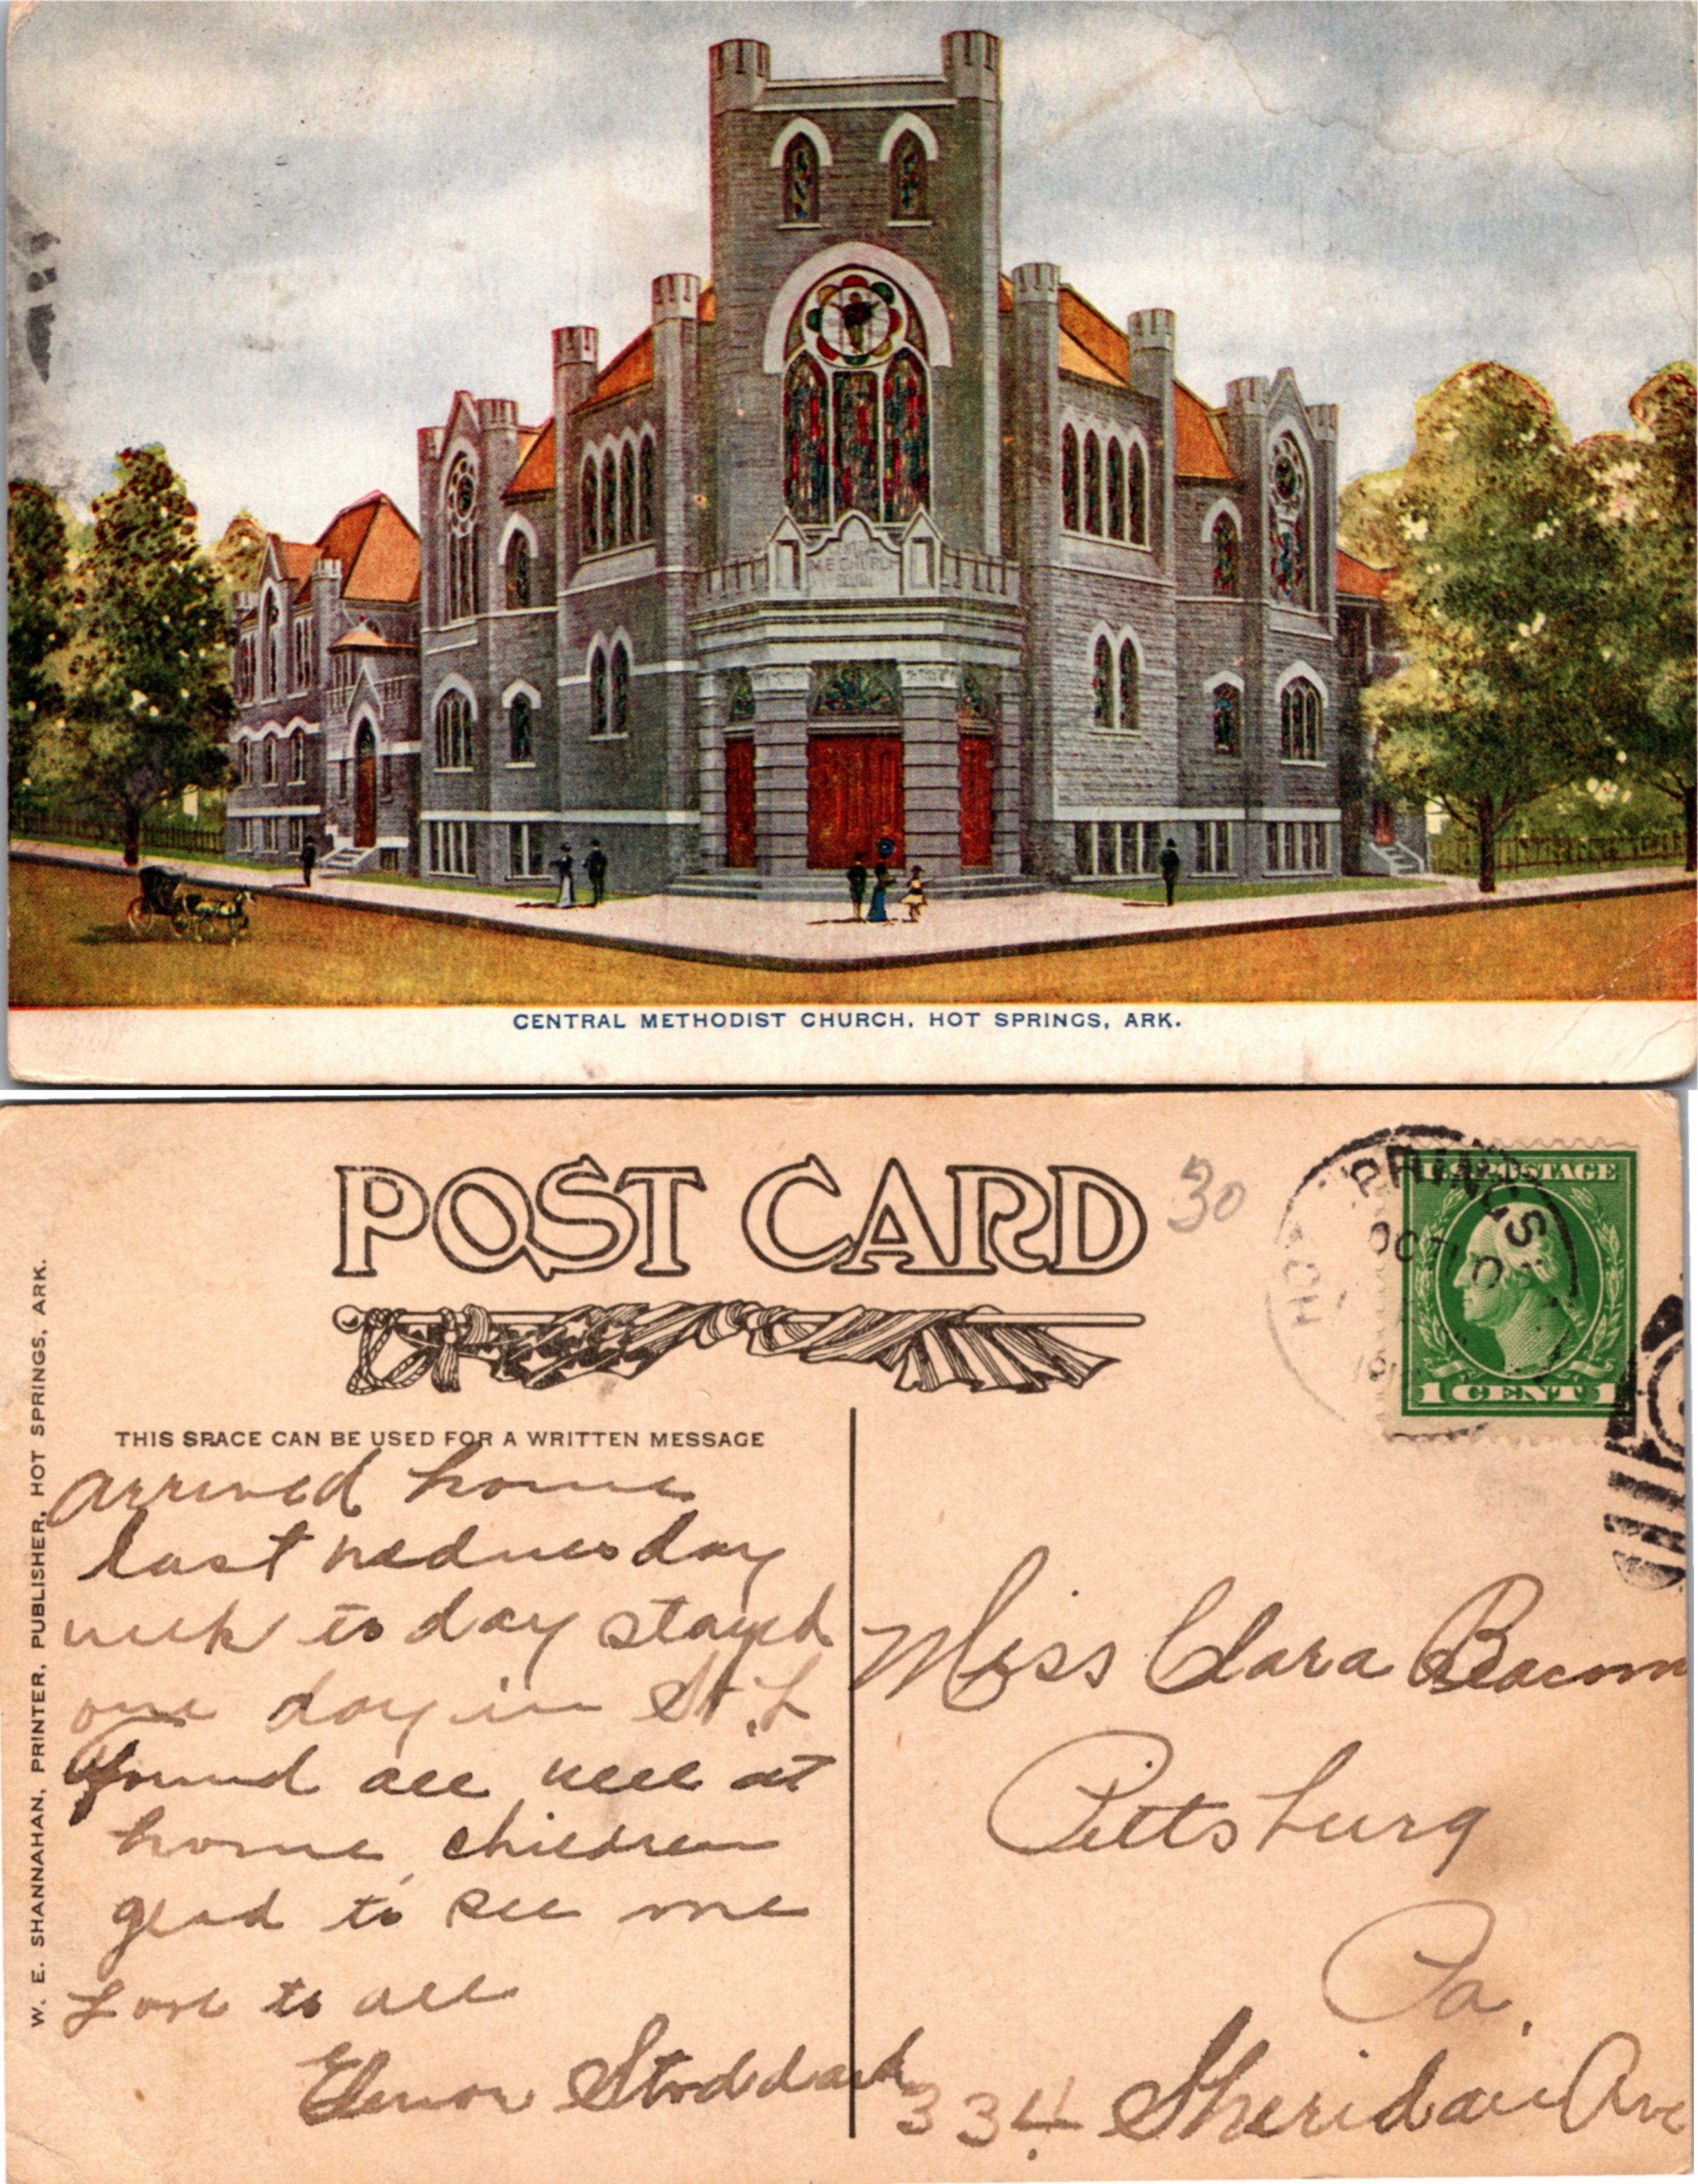 M. E. CHURCH
CENTRAL METHODIST CHURCH, HOT SPRINGS, ARK.
POST CARD
30
HOT SPRINGS
OCT 10
U.S. POSTAGE
1 CENT 1
W. E. SHANNAHAN, PRINTER, PUBLISHER, HOT SPRINGS, ARK.
THIS SPACE CAN BE USED FOR A WRITTEN MESSAGE
arrived home
last wednesday
week to day stayed
one day in St. L
found all well at
home, children
glad to see me
Love to all
Elenor Stoddard
Miss Clara Beacom
Pittsburg
Pa.
334 Sheridan Ave